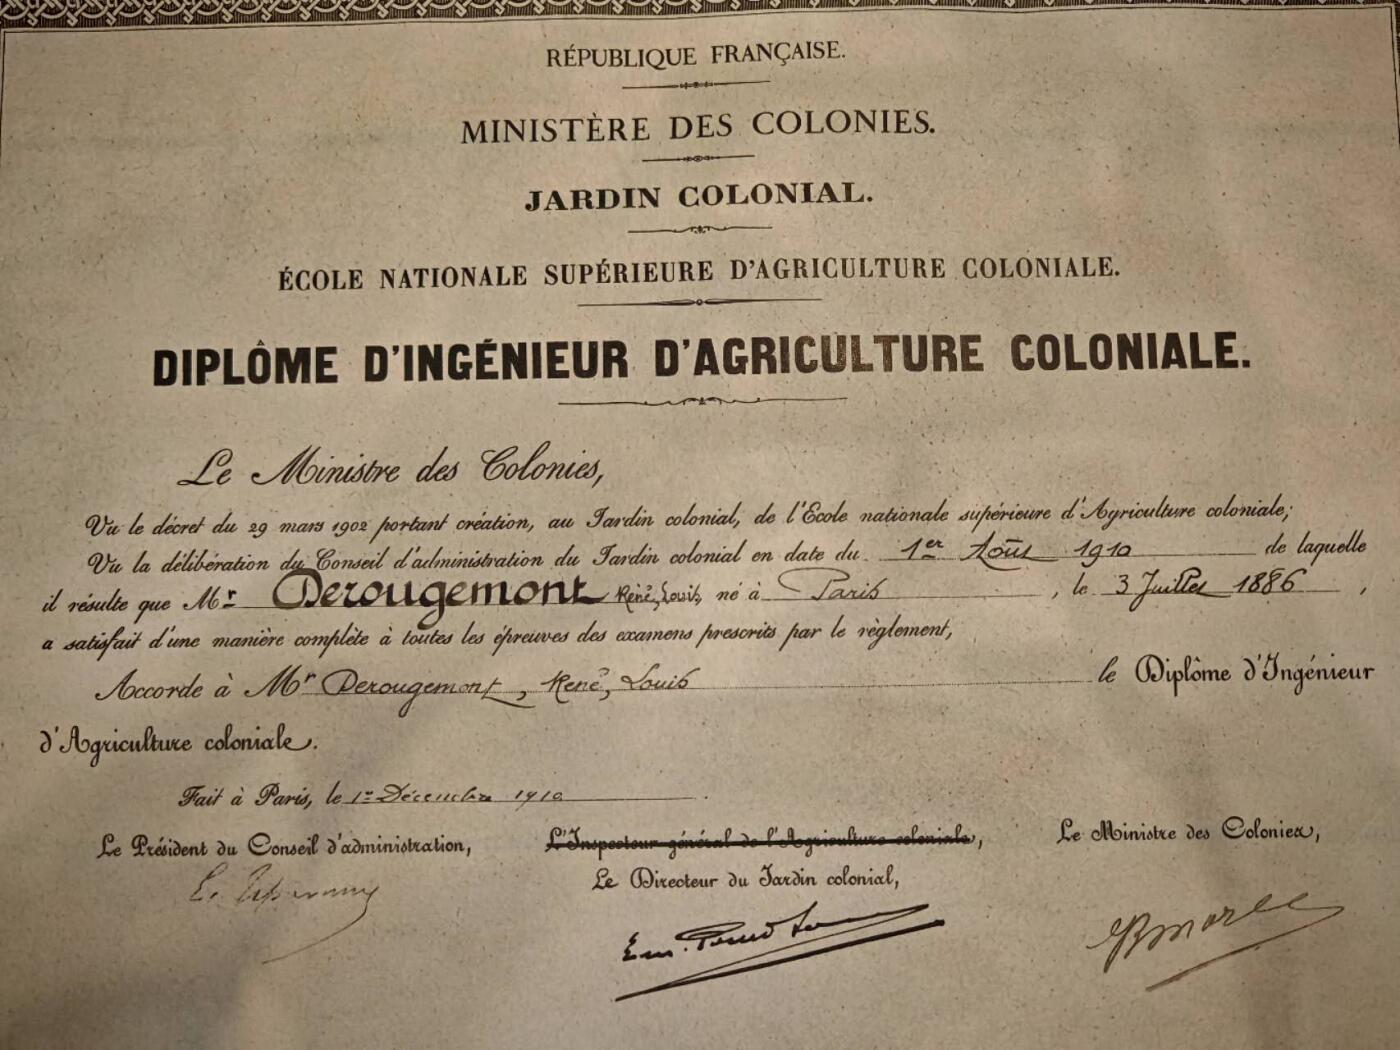 RÉPUBLIQUE FRANÇAISE.
MINISTÈRE DES COLONIES.
JARDIN COLONIAL.
ÉCOLE NATIONALE SUPÉRIEURE D'AGRICULTURE COLONIALE.
DIPLÔME D'INGÉNIEUR D'AGRICULTURE COLONIALE.
Le Ministre des Colonies,
Vu le décret du 29 mars 1902 portant création, au Jardin colonial, de l'Ecole nationale supérieure d'Agriculture coloniale;
Vu la délibération du Conseil d'administration du Jardin colonial en date du 1er Août 1910 de laquelle
il résulte que Mr Derougemont René, Louis, né à Paris, le 3 Juillet 1886,
a satisfait d'une manière complète à toutes les épreuves des examens prescrits par le règlement,
Accorde à Mr Derougemont, René, Louis le Diplôme d'Ingénieur
d'Agriculture coloniale.
Fait à Paris, le 1er Décembre 1910.
Le Président du Conseil d'administration, L'Inspecteur général de l'Agriculture coloniale, Le Ministre des Colonies,
Le Directeur du Jardin colonial,